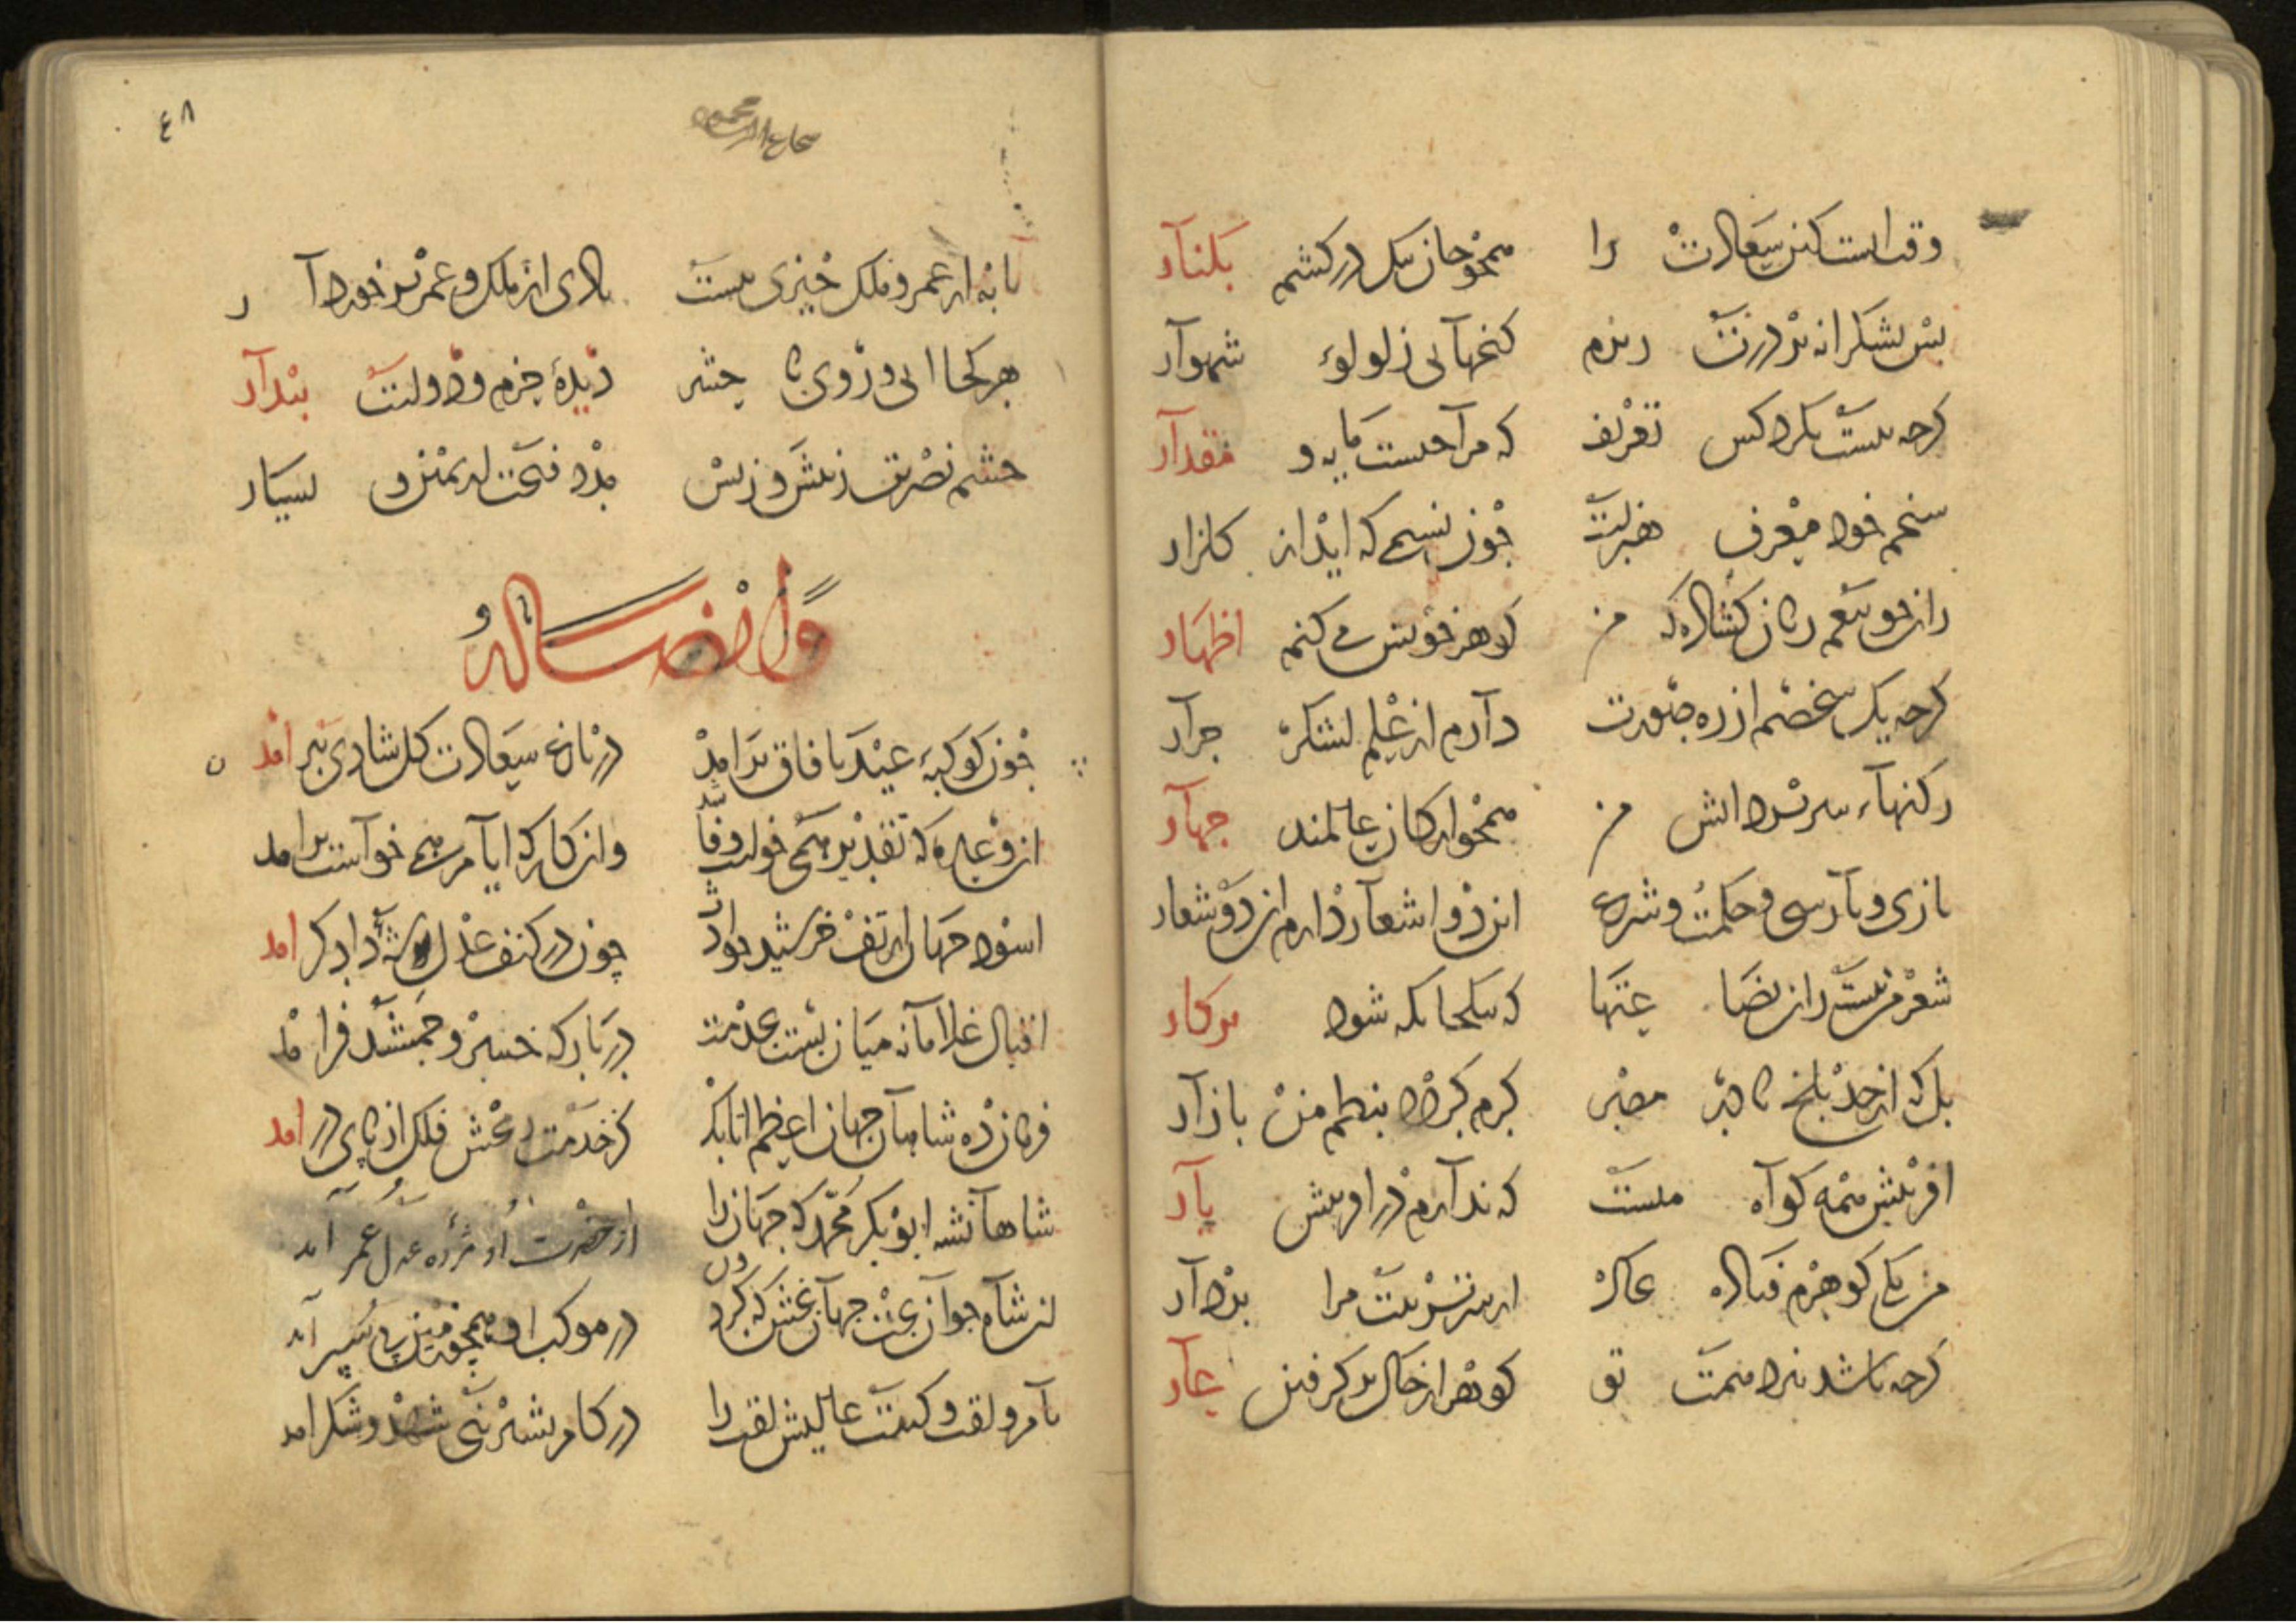 وقت است کز سعادت را همچو جان تنک در کشم بکنار
پس بشکرانه بر درت ریزم کنجهایی ز لولوء شهوار
کرجه نیست بکرد کس تعریف که مرا جیست مایه و مقدار
سخنم خود معرف هنریست جون نسیمی که اید از کلزار
کوهر خویش می کنم اظهار
کرجه یک شخصم از ره صورت دارم از علم لشکر جرار
رکنهاء سربر دانش من همجو ارکان عالمند جهار
تازی و بارسی و حکمت و شرع این دو اشعار دارم ان دو شعار
شعر من نیست زان بضاعتها که بیکجایکه شود بر کار
بل که از حد بلخ تا در مصر کرم کردد بنظم من بازار
افرینش همه کواه منست که ندارم در افرینش یار
من یکی کوهرم فتاده بخاک از سر تربیت مرا بردار
کرجه باشد بنزد همت تو کوهر از خاک بر کرفتن عار
۴۸
تا به از عمر و ملک جیزی نیست بادی از ملک و عمر برخوردار
هر کجا ایی و روی با جشم دیدهٔ حزم و دولتت بیدار
جشم نصرت ز بیش و ز بس مدد فتحت از یمین و یسار
وله ایضا
جون کوکبهٔ عید بافاق برامد در باغ سعادت کل شادی ببر امد
ان وعده که تقدیر همی خواست وفا شد وان کار که ایام همی خواست برامد
اسود جهان از تف خرشید حوادث جون در کنف عدل شه دادکر امد
اقبال غلامانه میان بست بخدمت در بارکه خسرو جمشید فر امد
فرمان ده شاهان جهان اعظم اتابک کز خدمت او بخش فلک از بای در امد
شاهانشه ابوبکر محمد که جهان را از حضرت او مژده عدل عمر آمد
ان شاه جوان بخت جهان بخش که کردون در موکب او همجو زمین بی سپر آمد
نام و لقب و کنیت عالیش لقب را در کام بشیرینی شهد و شکر امد